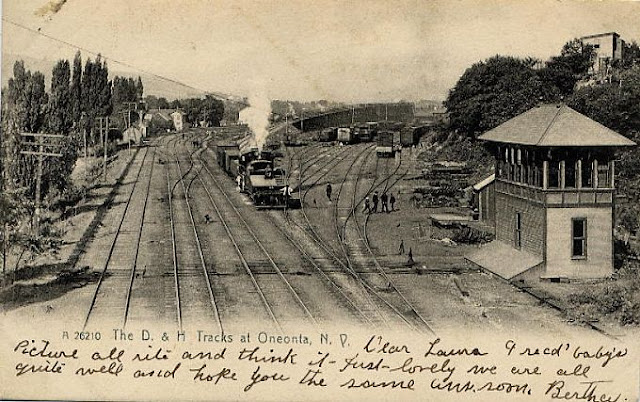 A 26210 The D. & H Tracks at Oneonta, N. Y.
Dear Laura I recd' baby's
Picture all rite and think it Just-lovely we are all
quite well and hope you the same ans. soon. Berthey.